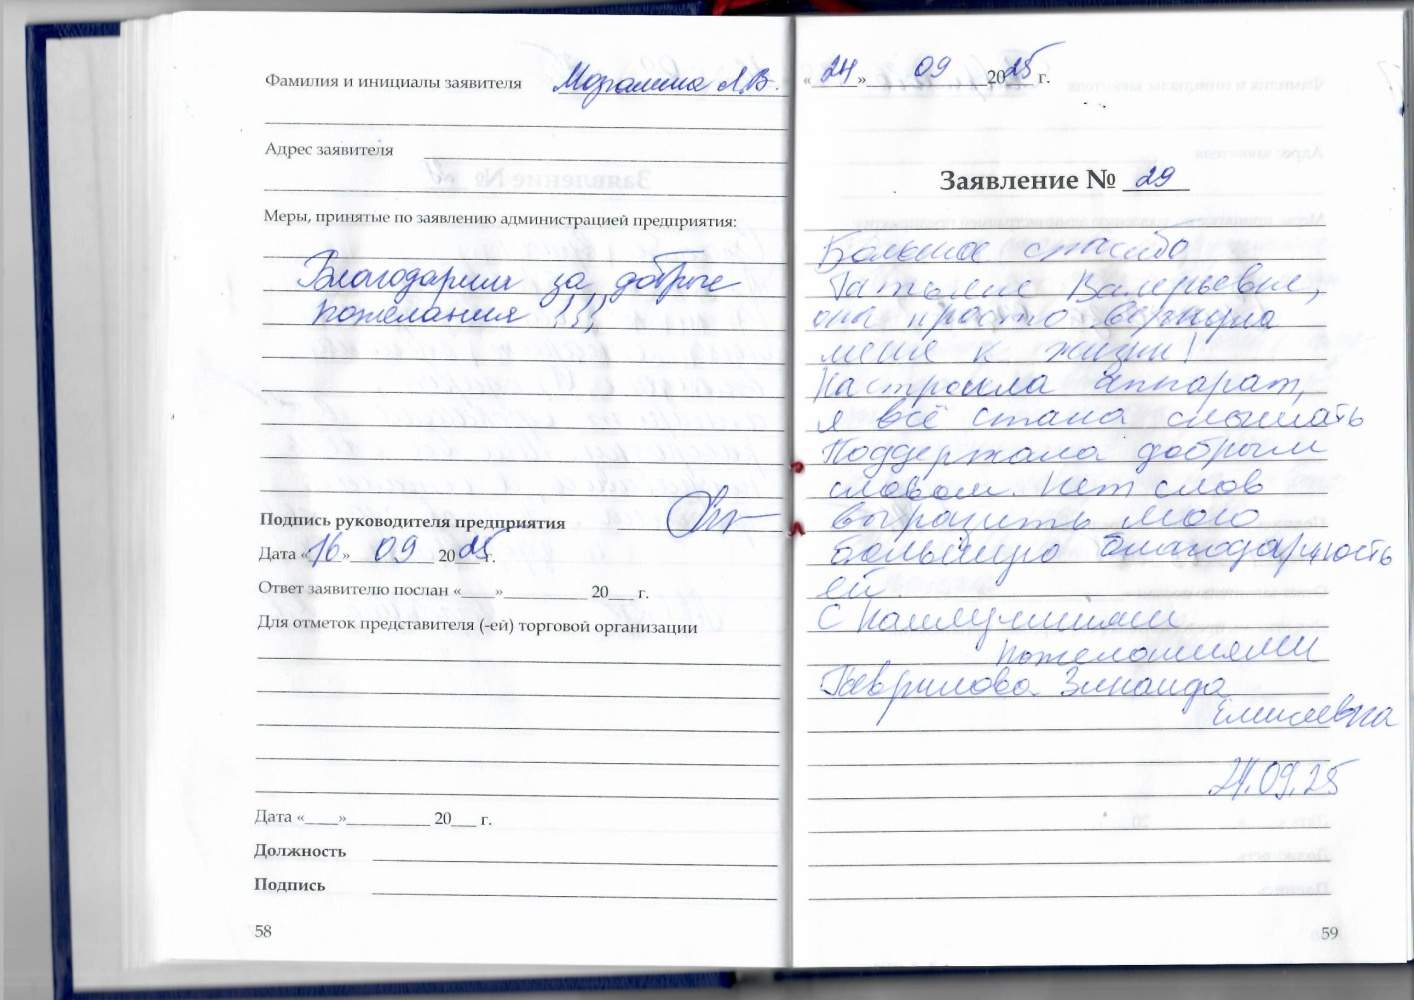 Фамилия и инициалы заявителя Моралина Л.В.
Адрес заявителя
Меры, принятые по заявлению администрацией предприятия:
Благодарим за добрые
пожелания !!!
Подпись руководителя предприятия
Дата «16» 09 2025 г.
Ответ заявителю послан «____»__________ 20___ г.
Для отметок представителя (-ей) торговой организации
Дата «____»__________ 20___ г.
Должность
Подпись
58
«24» 09 2025 г.
Заявление № 29
Большое спасибо
Татьяне Валерьевне,
она просто вернула
меня к жизни!
Настроила аппарат,
я всё стала слышать
Поддержала добрым
словом. Нет слов
выразить мою
большую благодарность
ей.
С наилучшими
пожеланиями
Гаврилова Зинаида
Елисеевна
24.09.25
59